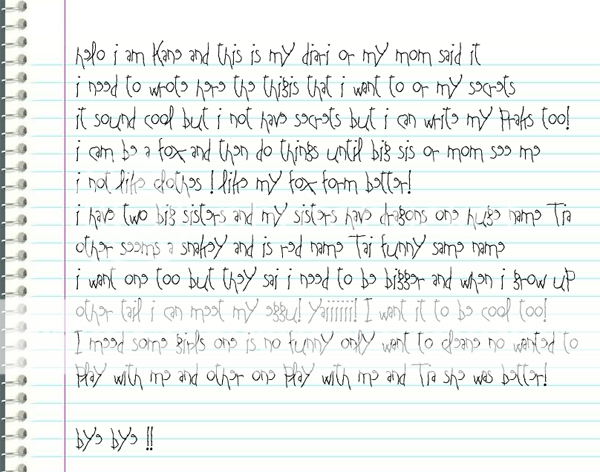 helo i am Kane and this is my diari or my mom said it
i need to wrote here the thigis that i want to or my secrets
it sound cool but i not have secrets but i can write my Praks too!
i cam be a fox and then do things until big sis or mom see me
i not like clothes ! like my fox form better!
i have two big sisters and my sisters have dragons one huge name Tia
other seems a snakey and is red name Tai funny same name
i want one too but they sai i need to be bigger and when i grow up
other tail i can meet my eggu! Yaiiiiii! I want it to be cool too!
I meed some girls one is no funny only want to cleane no wanted to
play with me and other one play with me and Tia she was better!
bye bye !!